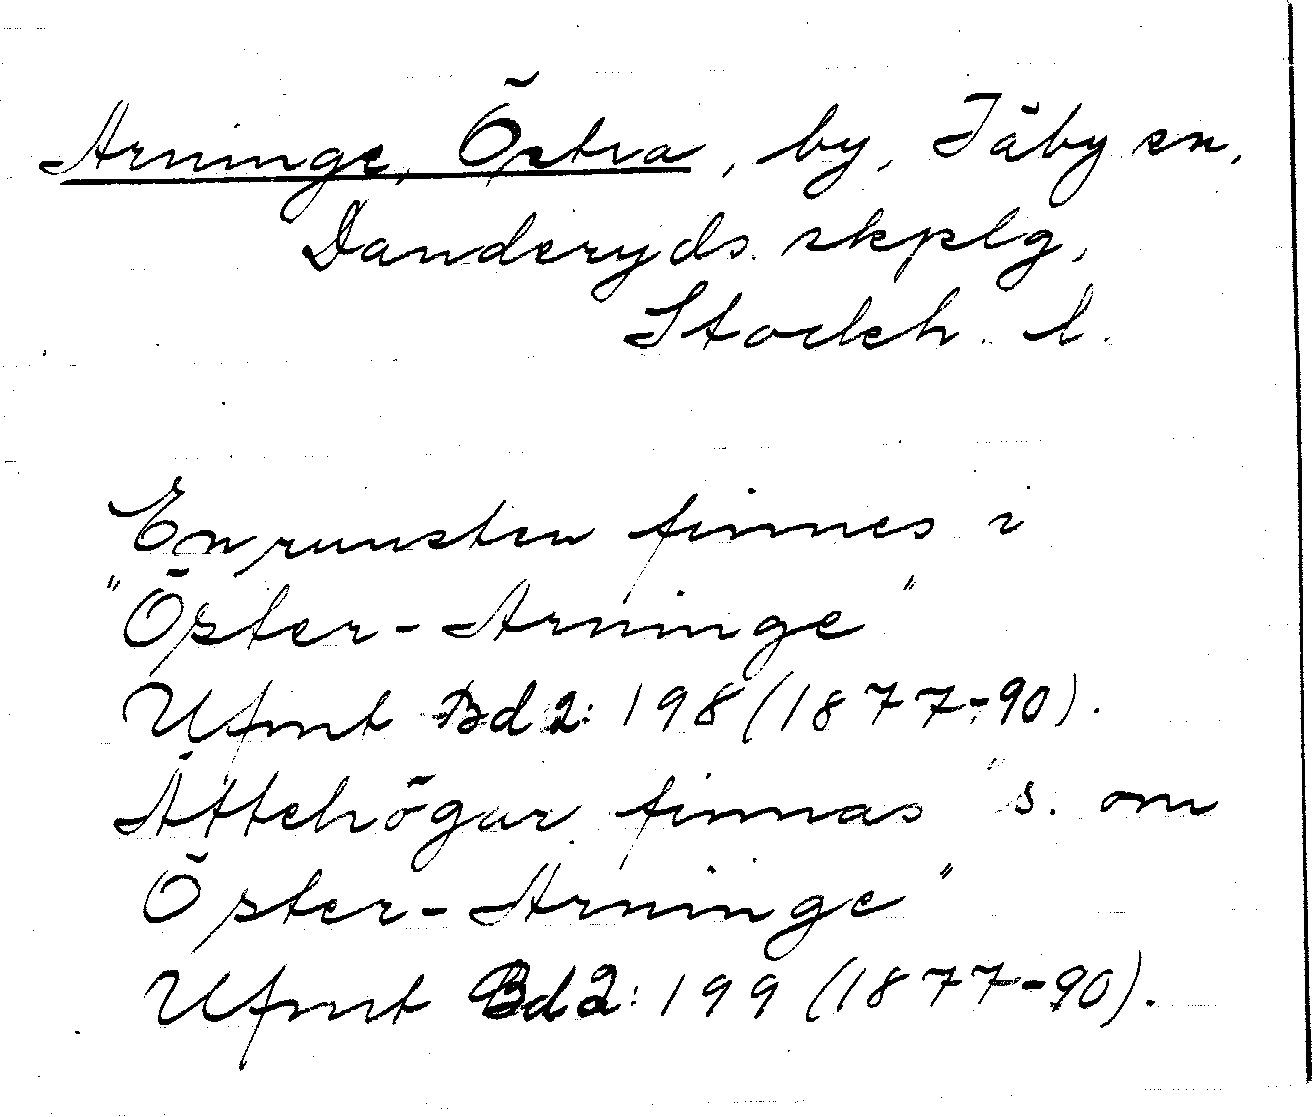 Arninge, Östra, by, Täby sn,
Danderyds skplg,
Stockh. l.
En runsten finnes i
"Öster-Arninge"
Ufmt Bd 2: 198 (1877-90).
Ättehögar finnas "s. om
Öster-Arninge"
Ufmt Bd 2: 199 (1877-90).